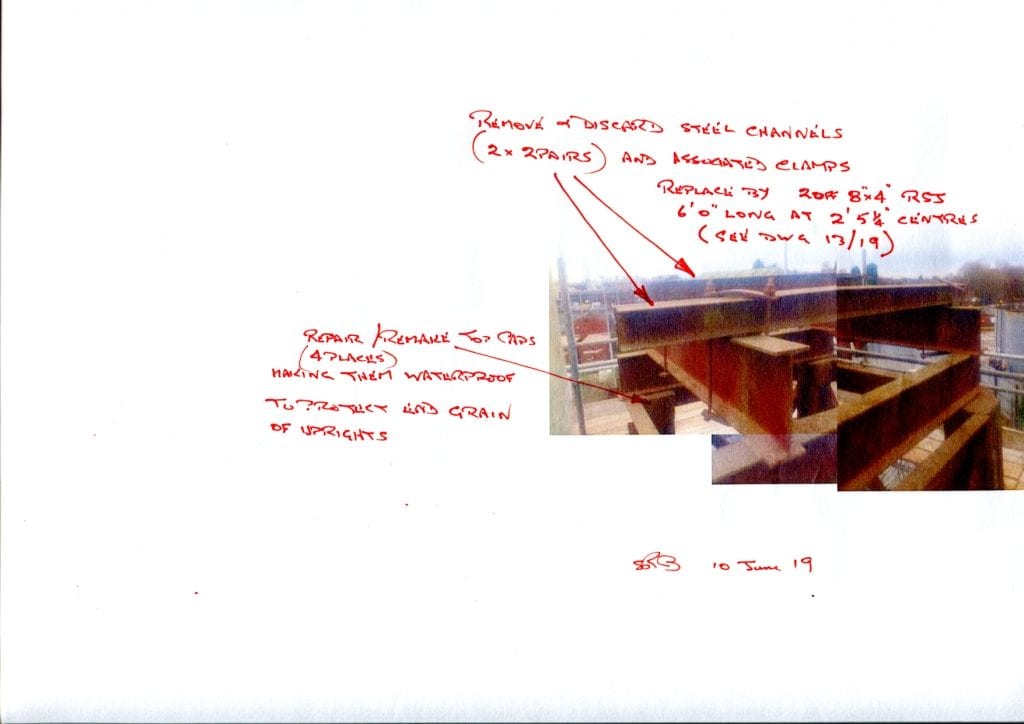 REMOVE & DISCARD STEEL CHANNELS
(2 x 2 PAIRS) AND ASSOCIATED CLAMPS
REPLACE BY 2 OFF 8"x4" RSJ
6'0" LONG AT 2'5¼" CENTRES
(SEE DWG 13/19)
REPAIR/REMAKE TOP CAPS
(4 PLACES)
MAKING THEM WATERPROOF
TO PROTECT END GRAIN
OF UPRIGHTS
10 June 19